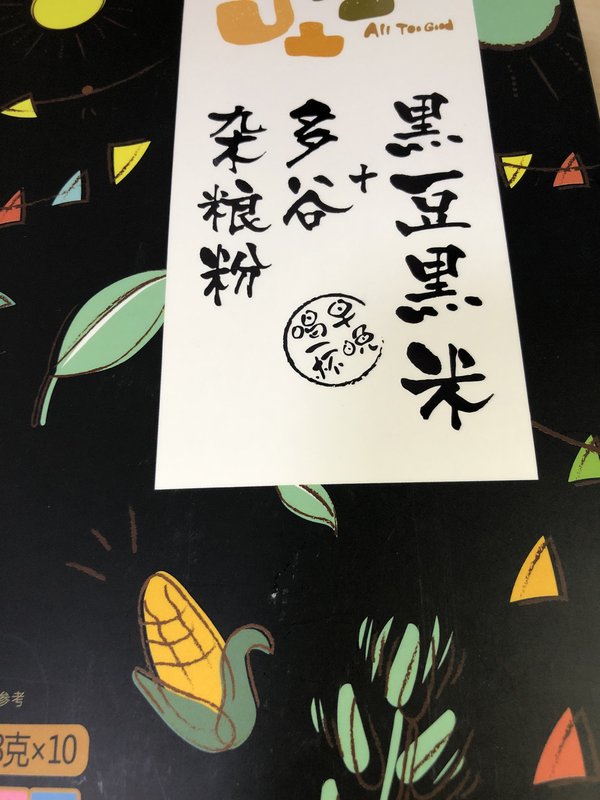 All Too Good
黑豆黑米
+
多谷
杂粮粉
早晚
喝一杯
参考
克×10